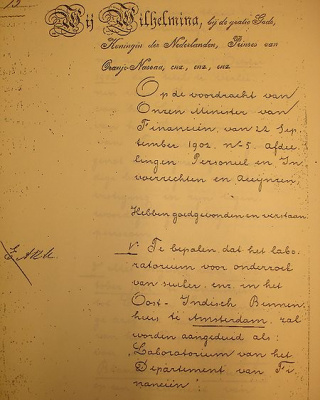 13
Wij Wilhelmina, bij de gratie Gods,
Koningin der Nederlanden, Prinses van
Oranje-Nassau, enz., enz., enz.
Op de voordracht van
Onzen Minister van
Financiën, van 22 Sep-
tember 1902, no 5, afdee-
lingen Personeel en In-
voerrechten en Accijnzen;
Hebben goedgevonden en verstaan:
1o Te bepalen, dat het labo-
ratorium voor onderzoek
van suiker, enz. in het
Oost-Indisch Binnen-
huis te Amsterdam zal
worden aangeduid als:
"Laboratorium van het
Departement van Fi-
nanciën".